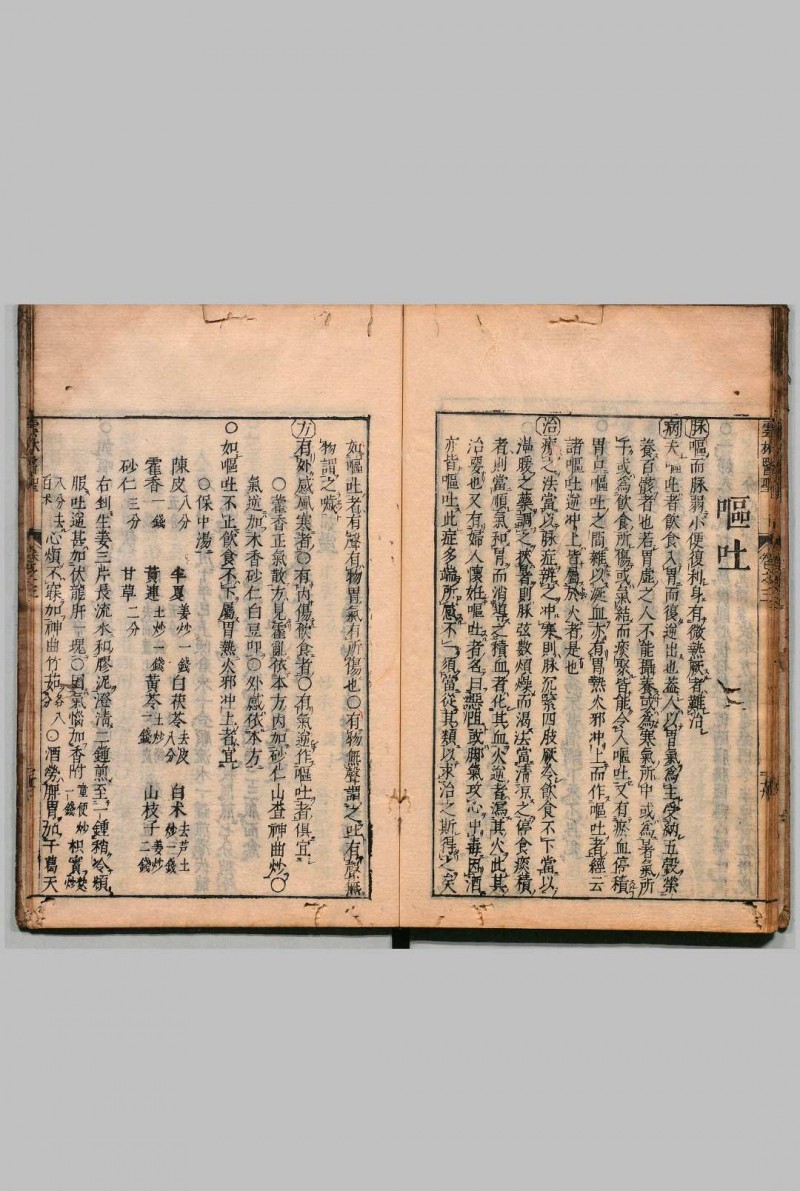 嘔吐
脉嘔而脉弱小便復利身有微熱厥者難治
病夫嘔吐者飲食入胃而復逆出也葢人以胃氣爲主受納五穀榮
養百骸者也若胃虛之人不能攝養或爲寒氣所中或爲暑氣所
干或爲飲食所傷或氣結而痰聚皆能令人嘔吐又有瘀血停積
胃口嘔吐之間雜以涎血亦有胃熱火邪冲上而作嘔吐者經云
諸嘔吐逆冲上皆屬於火者是也
治療之法當以脉症辨之中寒則脉沉緊四肢厥冷飲食不下當以
温暖之藥調之挾暑則脉弦數煩燥而渴法當清凉之停食痰積
者則當順氣和胃而消導之積血者化其血火逆者瀉其火此其
治要也又有婦人懷姙嘔吐者名曰惡阻或脚氣攻心中毒因酒
亦皆嘔吐此症多端所感不一須當從其類以求治之斯得之矣
如嘔吐者有聲有物胃氣有所傷也○有物無聲謂之吐有聲無
物謂之噦
方有外感風寒者○有内傷飲食者○有氣逆作嘔吐者俱宜
○藿香正氣散方見霍亂依本方内加砂仁山査神曲炒○
氣逆加木香砂仁白豆叩○外感依本方
○如嘔吐不止飲食不下屬胃熱火邪冲上者宜
○保中湯
陳皮八分 半夏姜炒一錢 白茯苓去皮八分 白术去芦土炒二錢
藿香一錢 黄連土炒一錢 黄芩土炒一錢 山枝子姜炒二錢
砂仁三分 甘草二分
右剉生姜三片長流水和膠泥澄清二鍾煎至一鍾稍冷頻
服吐逆甚加伏龍肝一塊○因氣惱加香附童便炒一錢枳實麸炒
八分去白术心煩不寐加神曲竹茹各八分○酒勞脾胃加干葛天